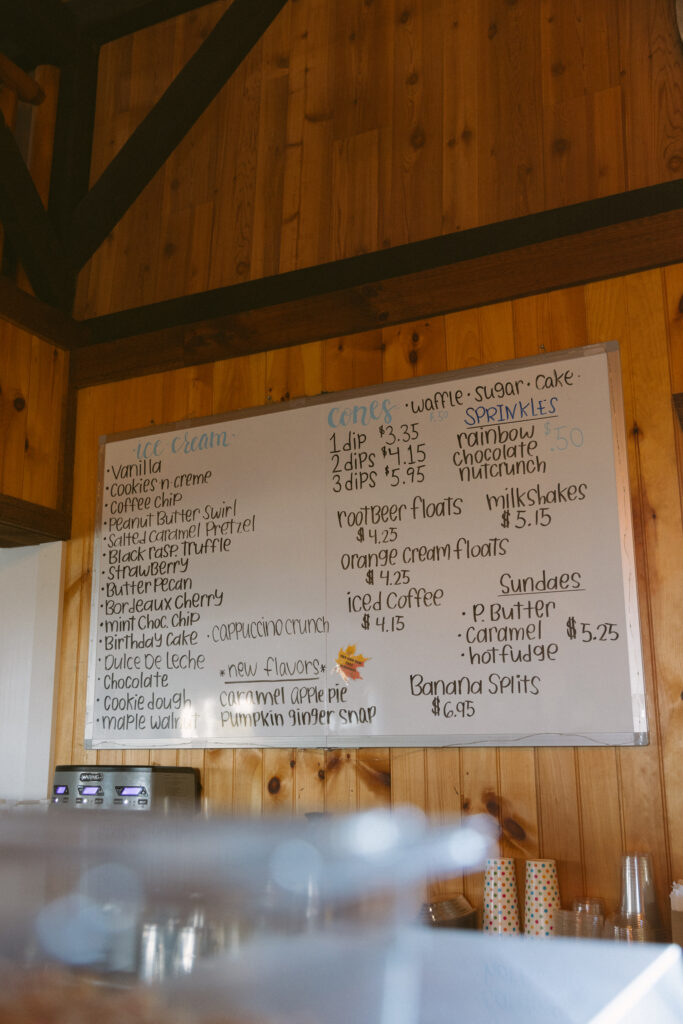 ice cream
• Vanilla
• Cookies n creme
• Coffee chip
• Peanut Butter Swirl
• Salted Caramel Pretzel
• Black rasp. Truffle
• Strawberry
• Butter Pecan
• Bordeaux Cherry
• mint Choc. Chip
• Birthday Cake • cappuccino crunch
• Dulce De Leche
• Chocolate
• cookie dough
• maple walnut
*new flavors*
caramel apple pie
Pumpkin ginger snap
cones • waffle • sugar • cake •
1 dip $3.35
2 dips $4.15
3 dips $5.95
SPRINKLES
rainbow
chocolate
nutcrunch
$.50
rootBeer floats
$4.25
milkshakes
$5.15
orange cream floats
$4.25
iced coffee
$4.15
Sundaes
• P. Butter
• Caramel
• hot fudge
$5.25
Banana Splits
$6.95